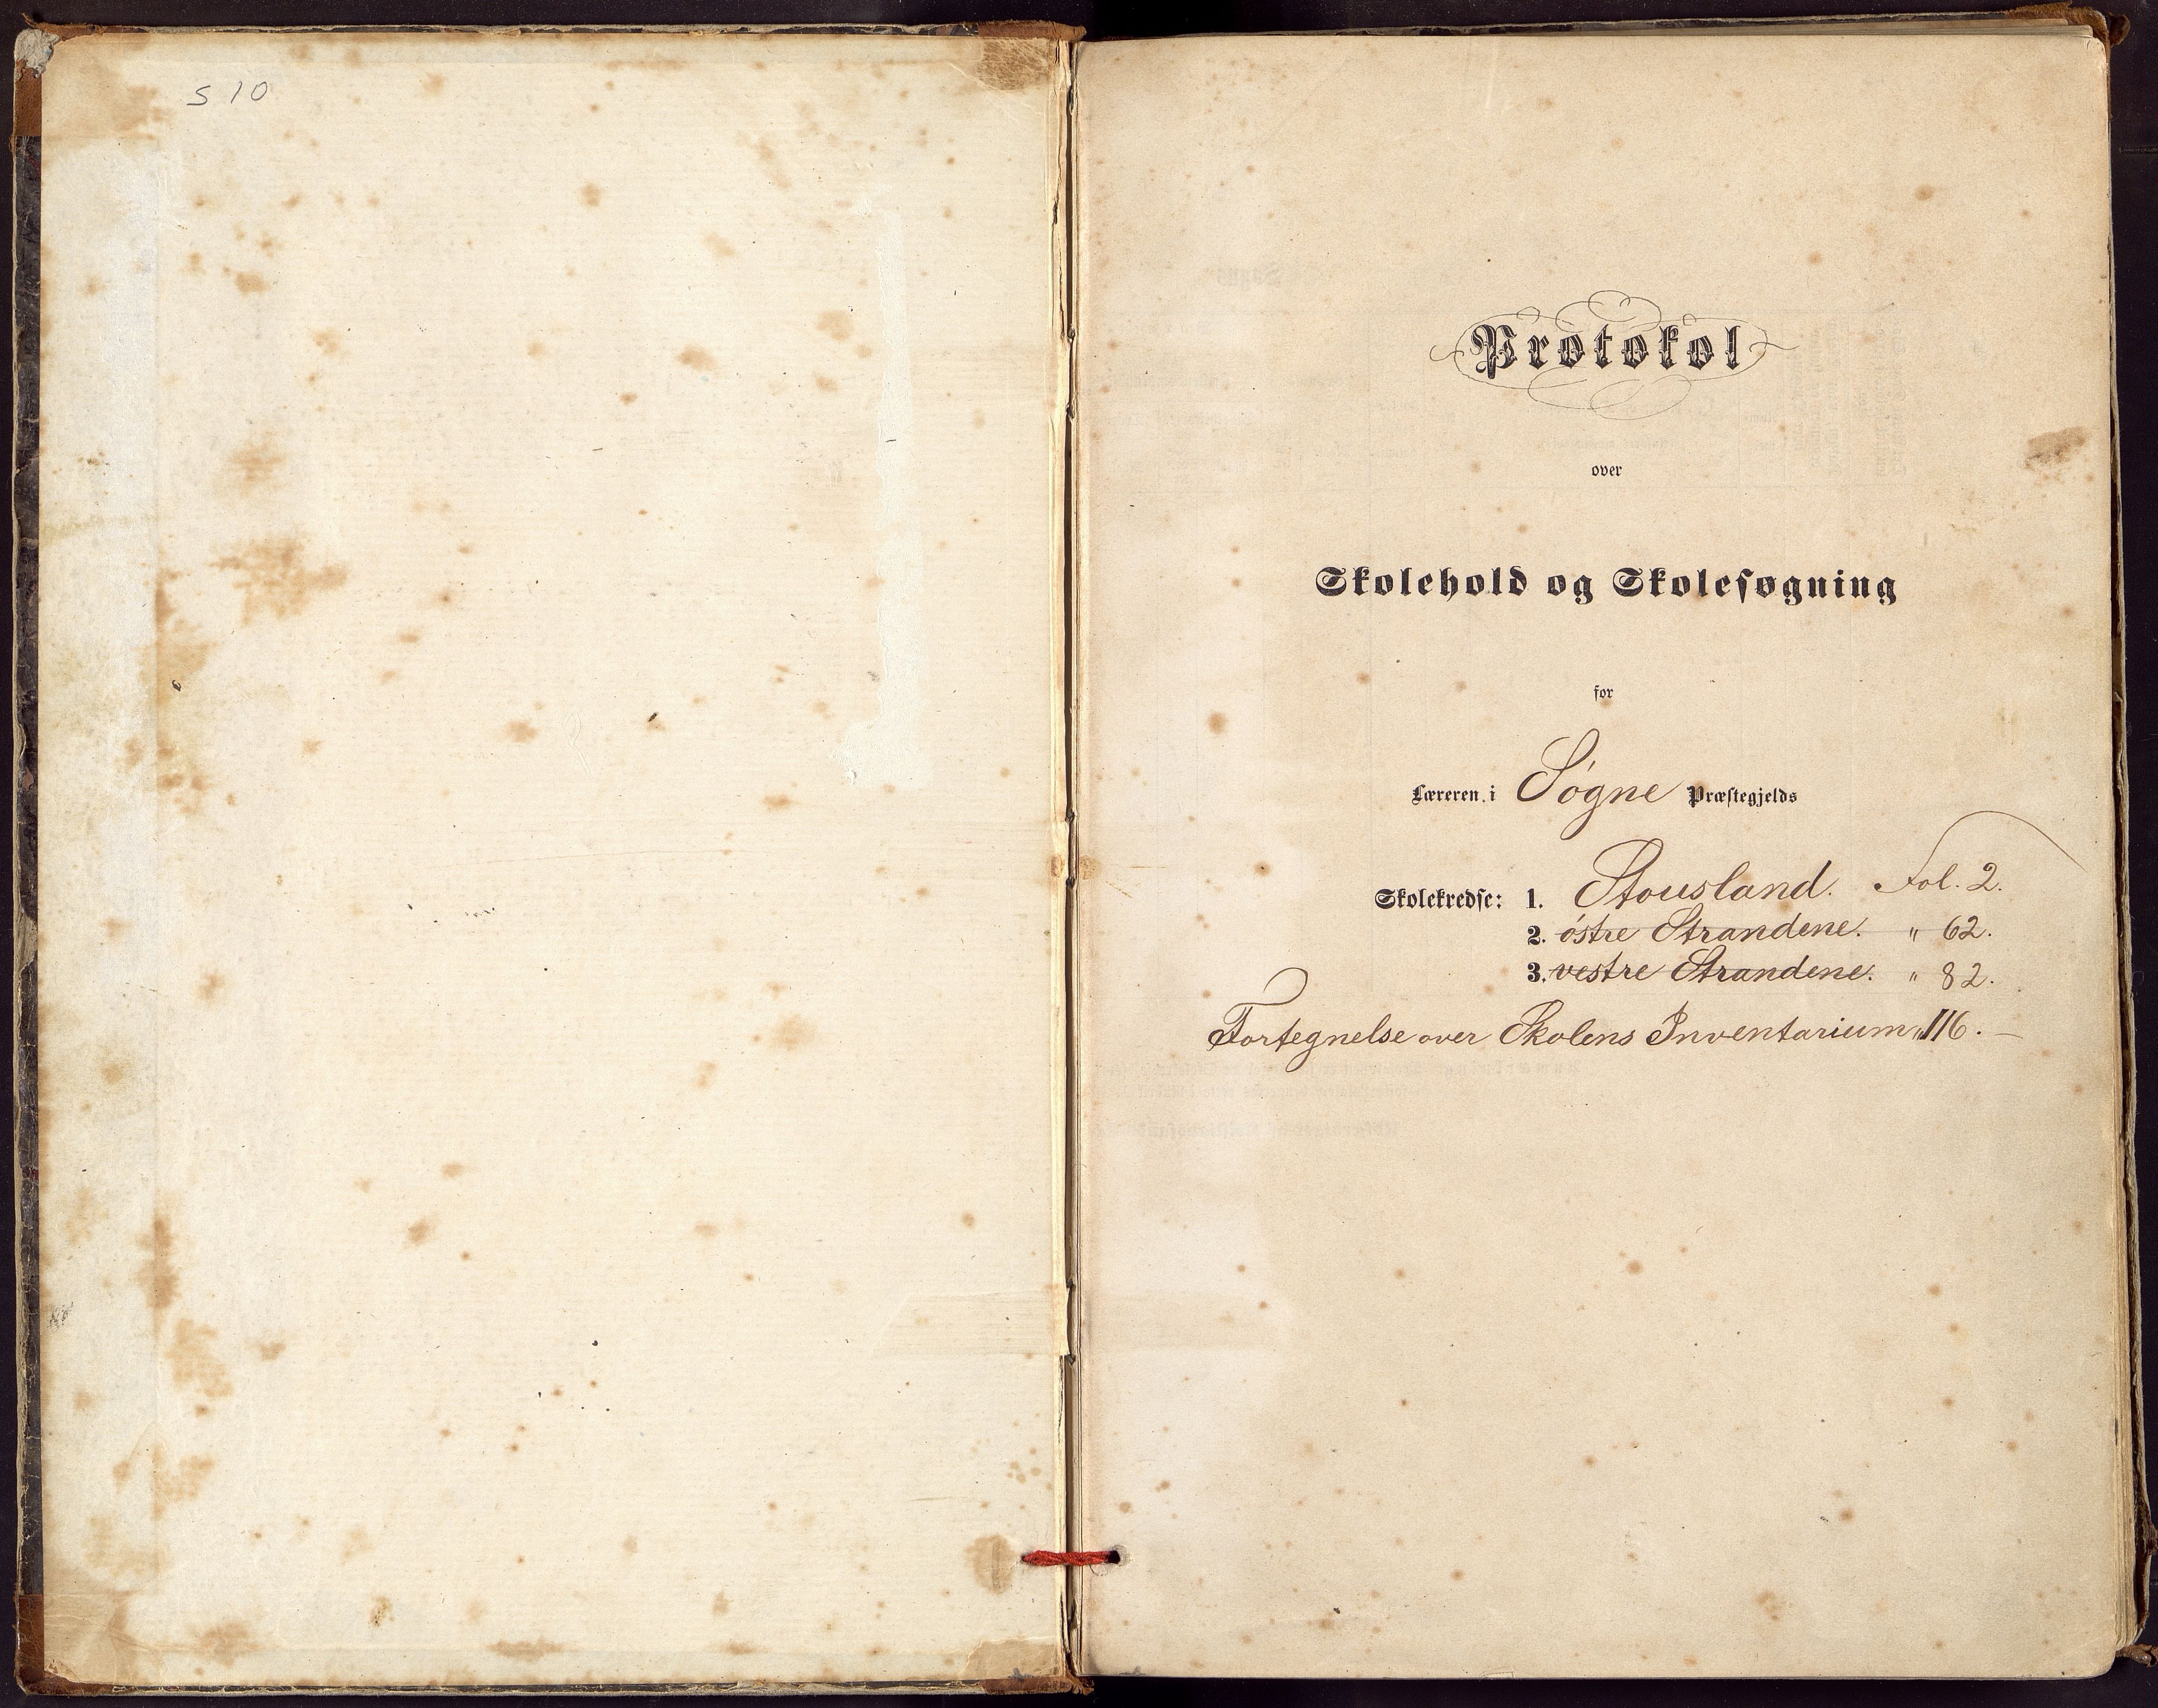 S 10
Protokol
over
Skolehold og Skolesøgning
for
Læreren i Søgne Præstegjelds
Skolekredse: 1. Stousland. Fol. 2.
2. østre Strandene. " 62.
3. vestre Strandene. " 82.
Fortegnelse over Skolens Inventarium " 116. —